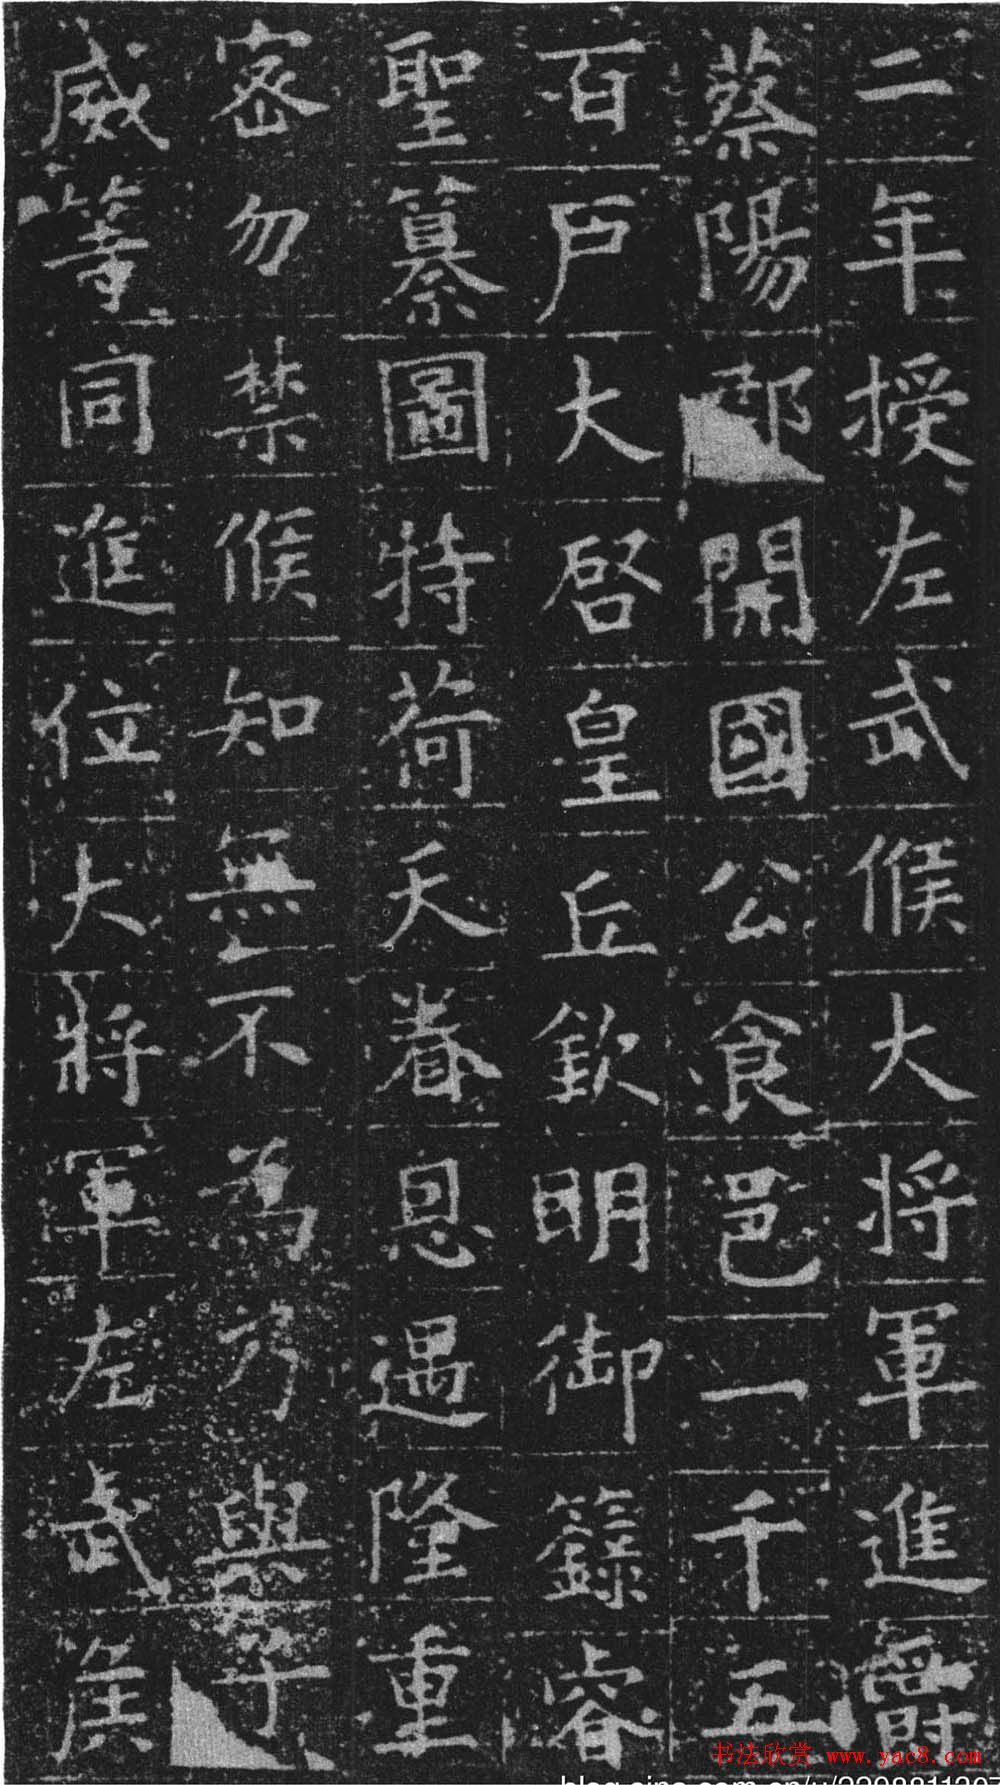 二年授左武候大将軍進爵
蔡陽郡開國公食邑一千五
百戶大啓皇丘欽明御籙睿
聖纂圖特荷天眷恩遇隆重
密勿禁候知無不為乃與子
威等同進位大將軍左武侯
书法欣赏 www.yac8.com